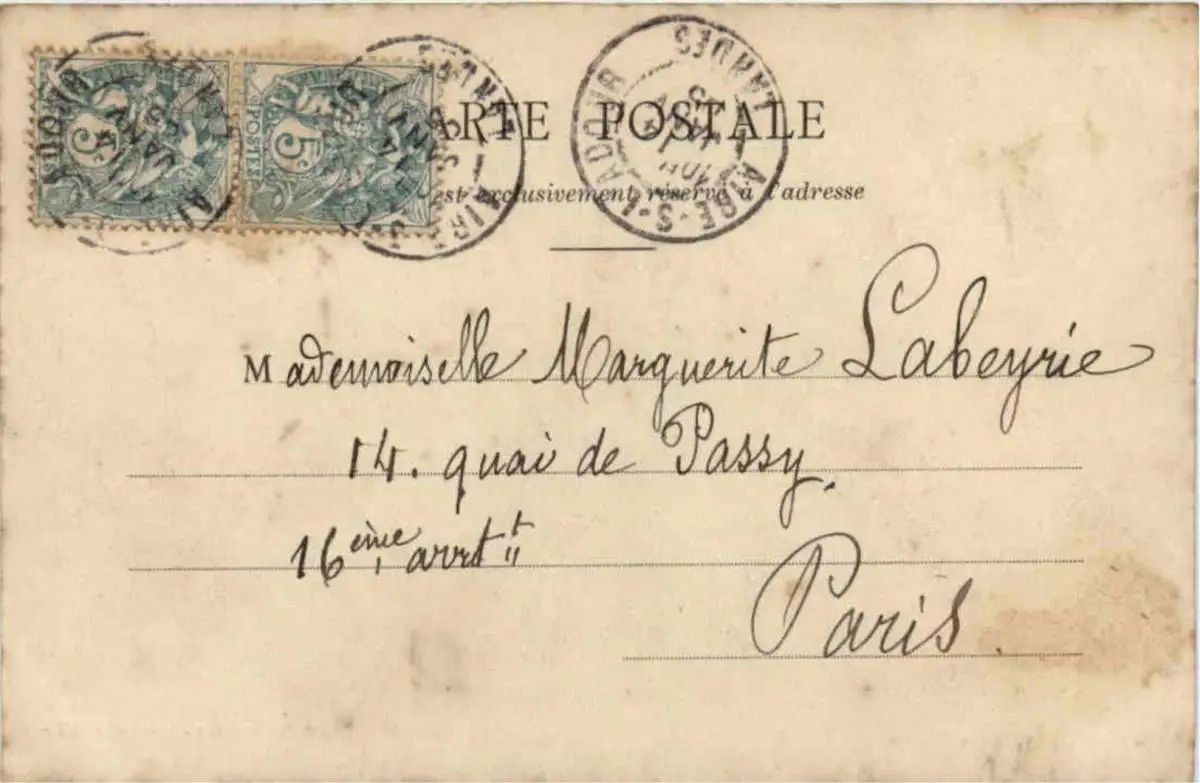 CARTE POSTALE
est exclusivement réservé à l'adresse
AIRE-S-L'ADOUR
LANDES
5
POSTES
5
Mademoiselle Marguerite Labeyrie
14. quai de Passy.
16ème arrt
Paris